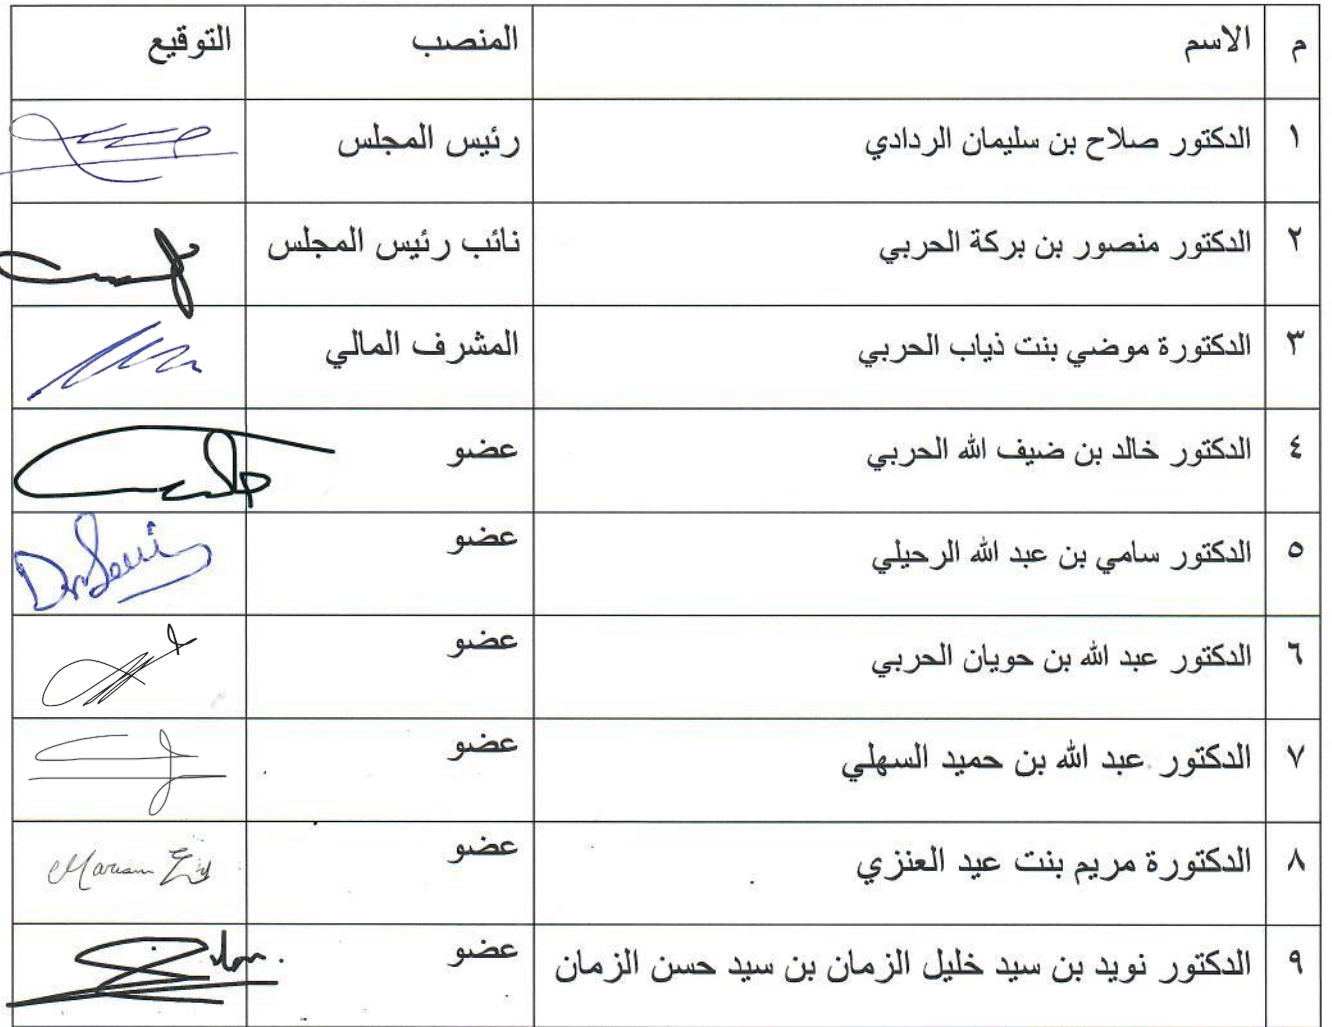 م الاسم المنصب التوقيع
١ الدكتور صلاح بن سليمان الردادي رئيس المجلس
٢ الدكتور منصور بن بركة الحربي نائب رئيس المجلس
٣ الدكتورة موضي بنت ذياب الحربي المشرف المالي
٤ الدكتور خالد بن ضيف الله الحربي عضو
٥ الدكتور سامي بن عبد الله الرحيلي عضو
٦ الدكتور عبد الله بن حويان الحربي عضو
٧ الدكتور عبد الله بن حميد السهلي عضو
٨ الدكتورة مريم بنت عيد العنزي عضو
٩ الدكتور نويد بن سيد خليل الزمان بن سيد حسن الزمان عضو